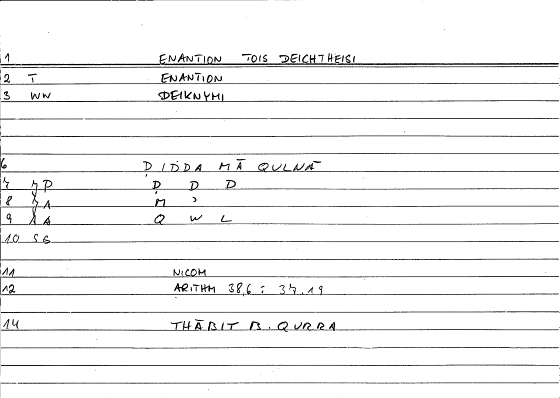 1 ENANTION TOIS DEICHTHEISI
2 T ENANTION
3 WW DEIKNYMI
6 ḌIDDA MĀ QULNĀ
7 D D D
8 M ʾ
9 Q W L
10 SG
11 NICOM
12 ARITHM 38,6 : 37.19
14 THĀBIT B. QURRA